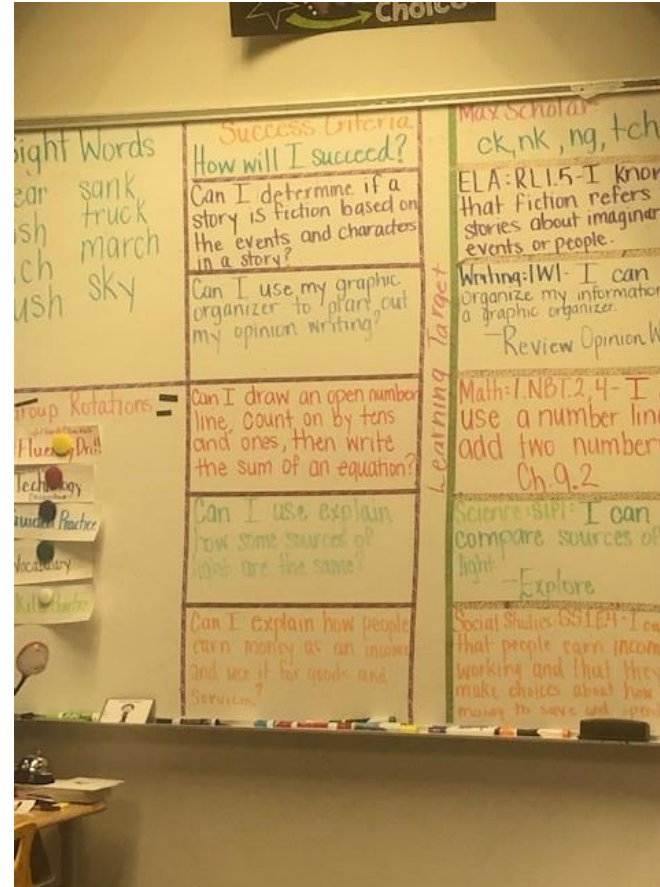 Choice
ight Words
ear sank
ish truck
ch march
ush sky
Success Criteria
How will I succeed?
Can I determine if a
story is fiction based on
the events and characters
in a story?
Can I use my graphic
organizer to plan out
my opinion writing?
Can I draw an open number
line, count on by tens
and ones, then write
the sum of an equation?
Can I use explain
how some sources of
light are the same?
Can I explain how people
earn money as an income
and use it for goods and
services?
roup Rotations
Fluency Drill
Technology
Guided Practice
Vocabulary
Skill Practice
Learning Target
Max Scholar-
ck, nk, ng, tch
ELA:RL1.5-I Know
that fiction refers
stories about imaginar
events or people.
Writing:1W1- I can
organize my information
a graphic organizer.
-Review Opinion W
Math:1.NBT.2,4-I
use a number line
add two number
Ch.9.2
Science:S1P1: I can
compare sources of
light
-Explore
Social Studies:SS1E4-I can
that people earn incom
working and that they
make choices about how
money to save and spend